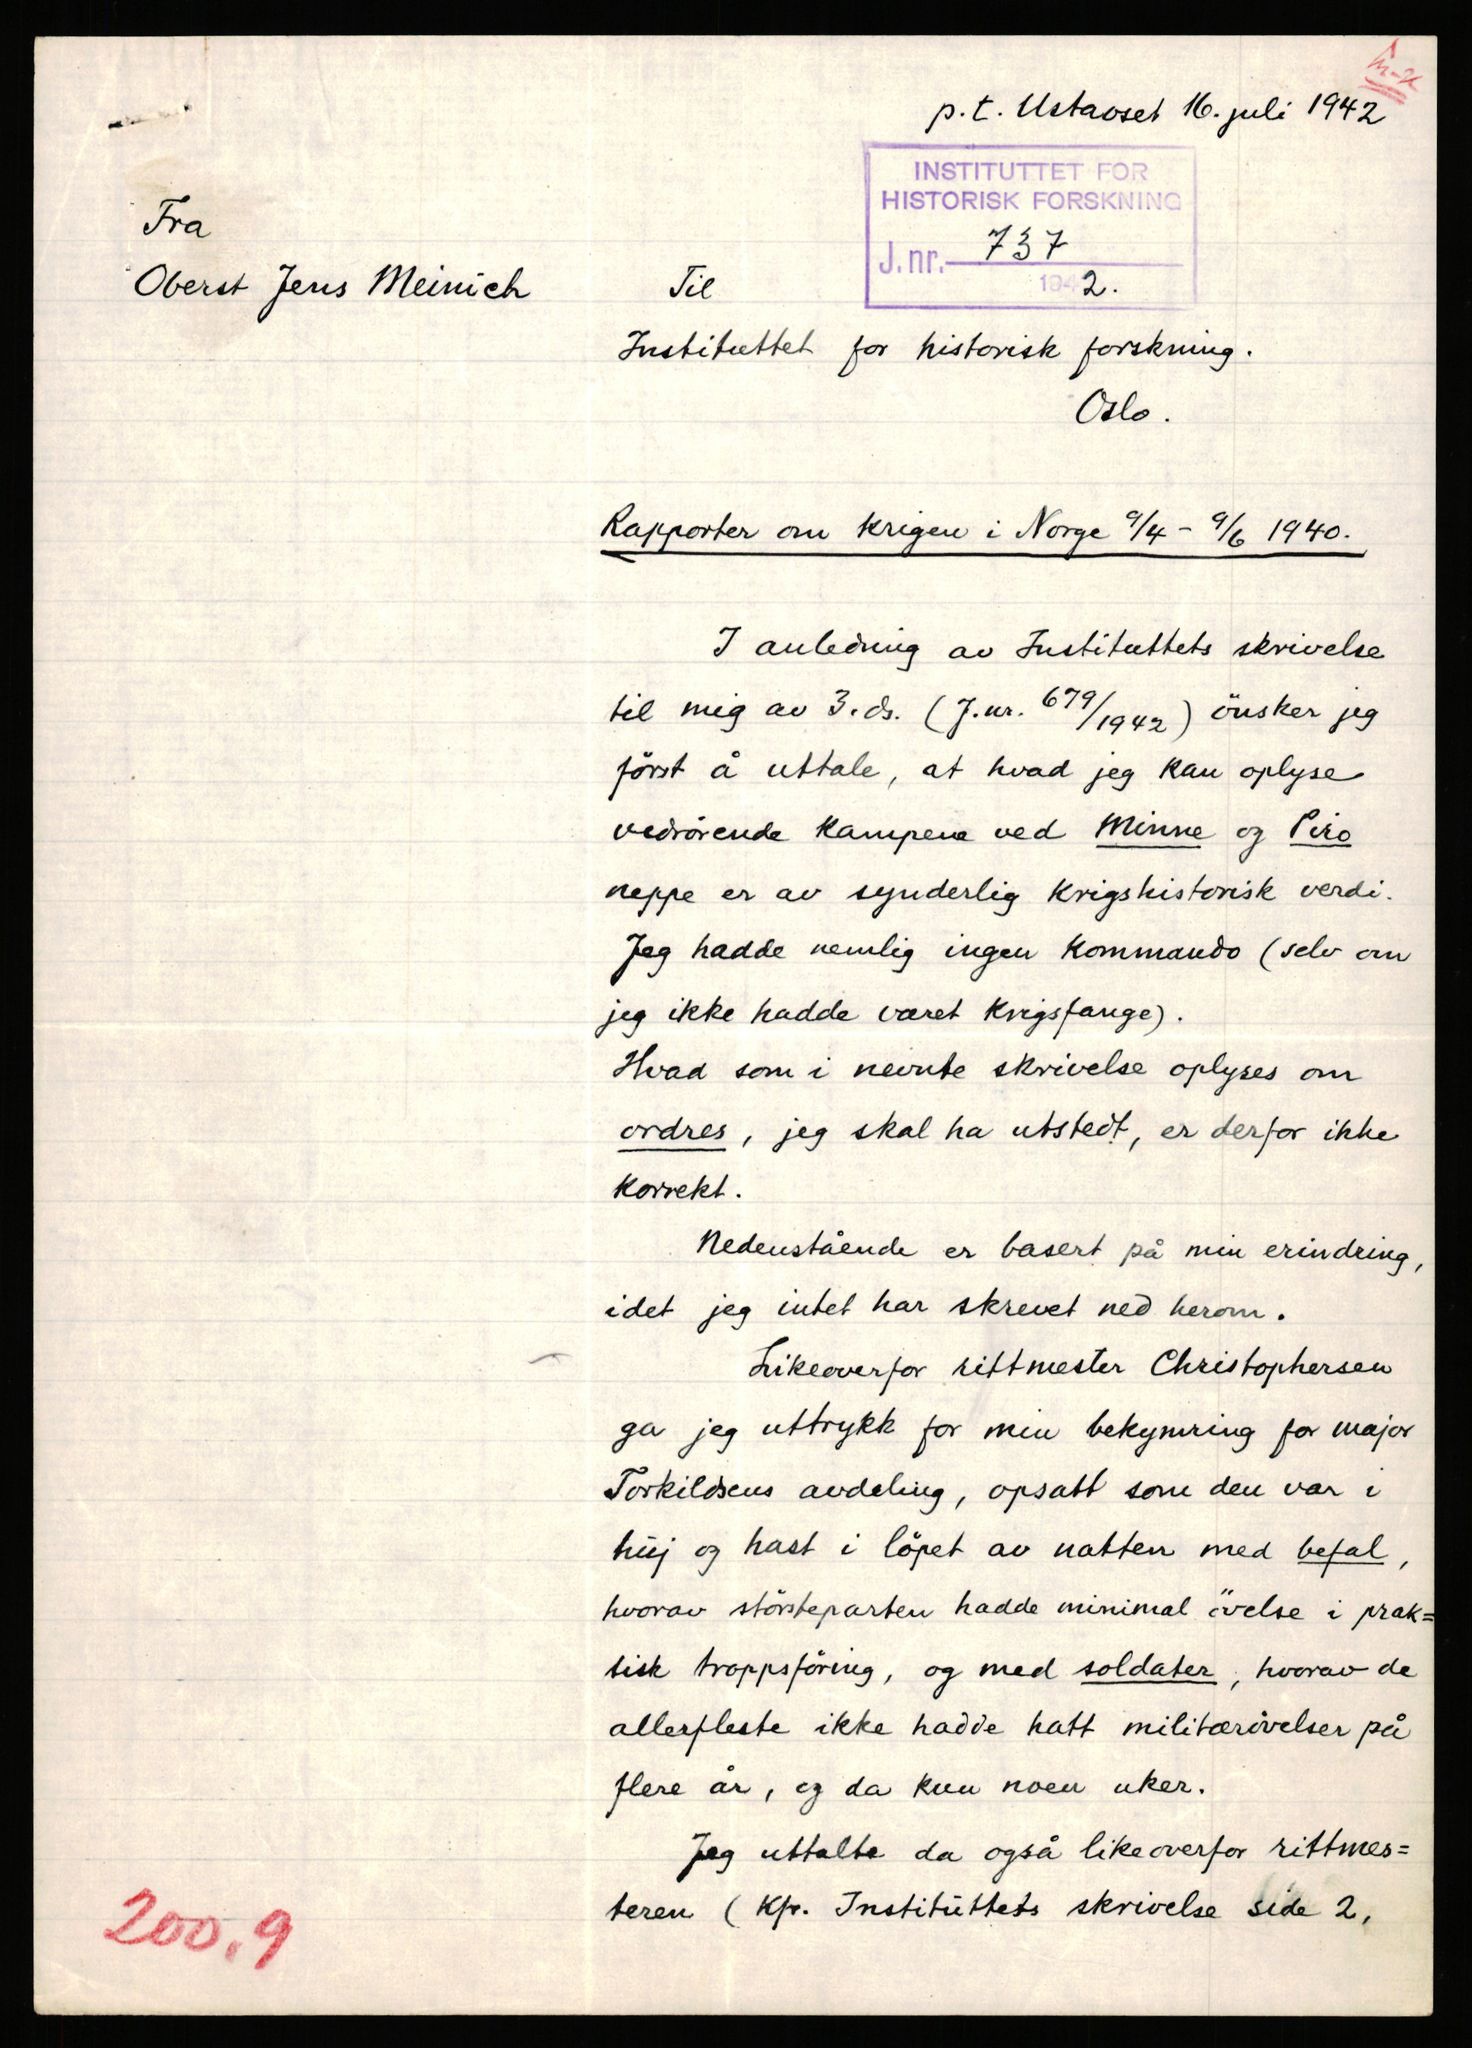 p.t. Ustaoset 16. juli 1942
INSTITUTTET FOR
HISTORISK FORSKNING
J. nr. 737
1942.
Fra
Oberst Jens Meinich
Til
Instituttet for historisk forskning.
Oslo.
Rapporter om krigen i Norge 9/4 - 9/6 1940.
I anledning av Instituttets skrivelse
til mig av 3. ds. (J.nr. 679/1942) önsker jeg
först å uttale, at hvad jeg kan oplyse
vedrörende kampene ved Minne og Piro
neppe er av synderlig krigshistorisk verdi.
Jeg hadde nemlig ingen kommando (selv om
jeg ikke hadde været krigsfange).
Hvad som i nevnte skrivelse oplyses om
ordres, jeg skal ha utstedt, er derfor ikke
korrekt.
Nedenstående er basert på min erindring,
idet jeg intet har skrevet ned herom.
Likeoverfor rittmester Christophersen
ga jeg uttrykk for min bekymring for major
Torkildsens avdeling, opsatt som den var i
huj og hast i löpet av natten med befal,
hvorav störsteparten hadde minimal övelse i prak=
tisk troppsföring, og med soldater, hvorav de
allerfleste ikke hadde hatt militærövelser på
flere år, og da kun noen uker.
Jeg uttalte da også likeoverfor rittmes=
teren (kfr. Instituttets skrivelse side 2,
200.9